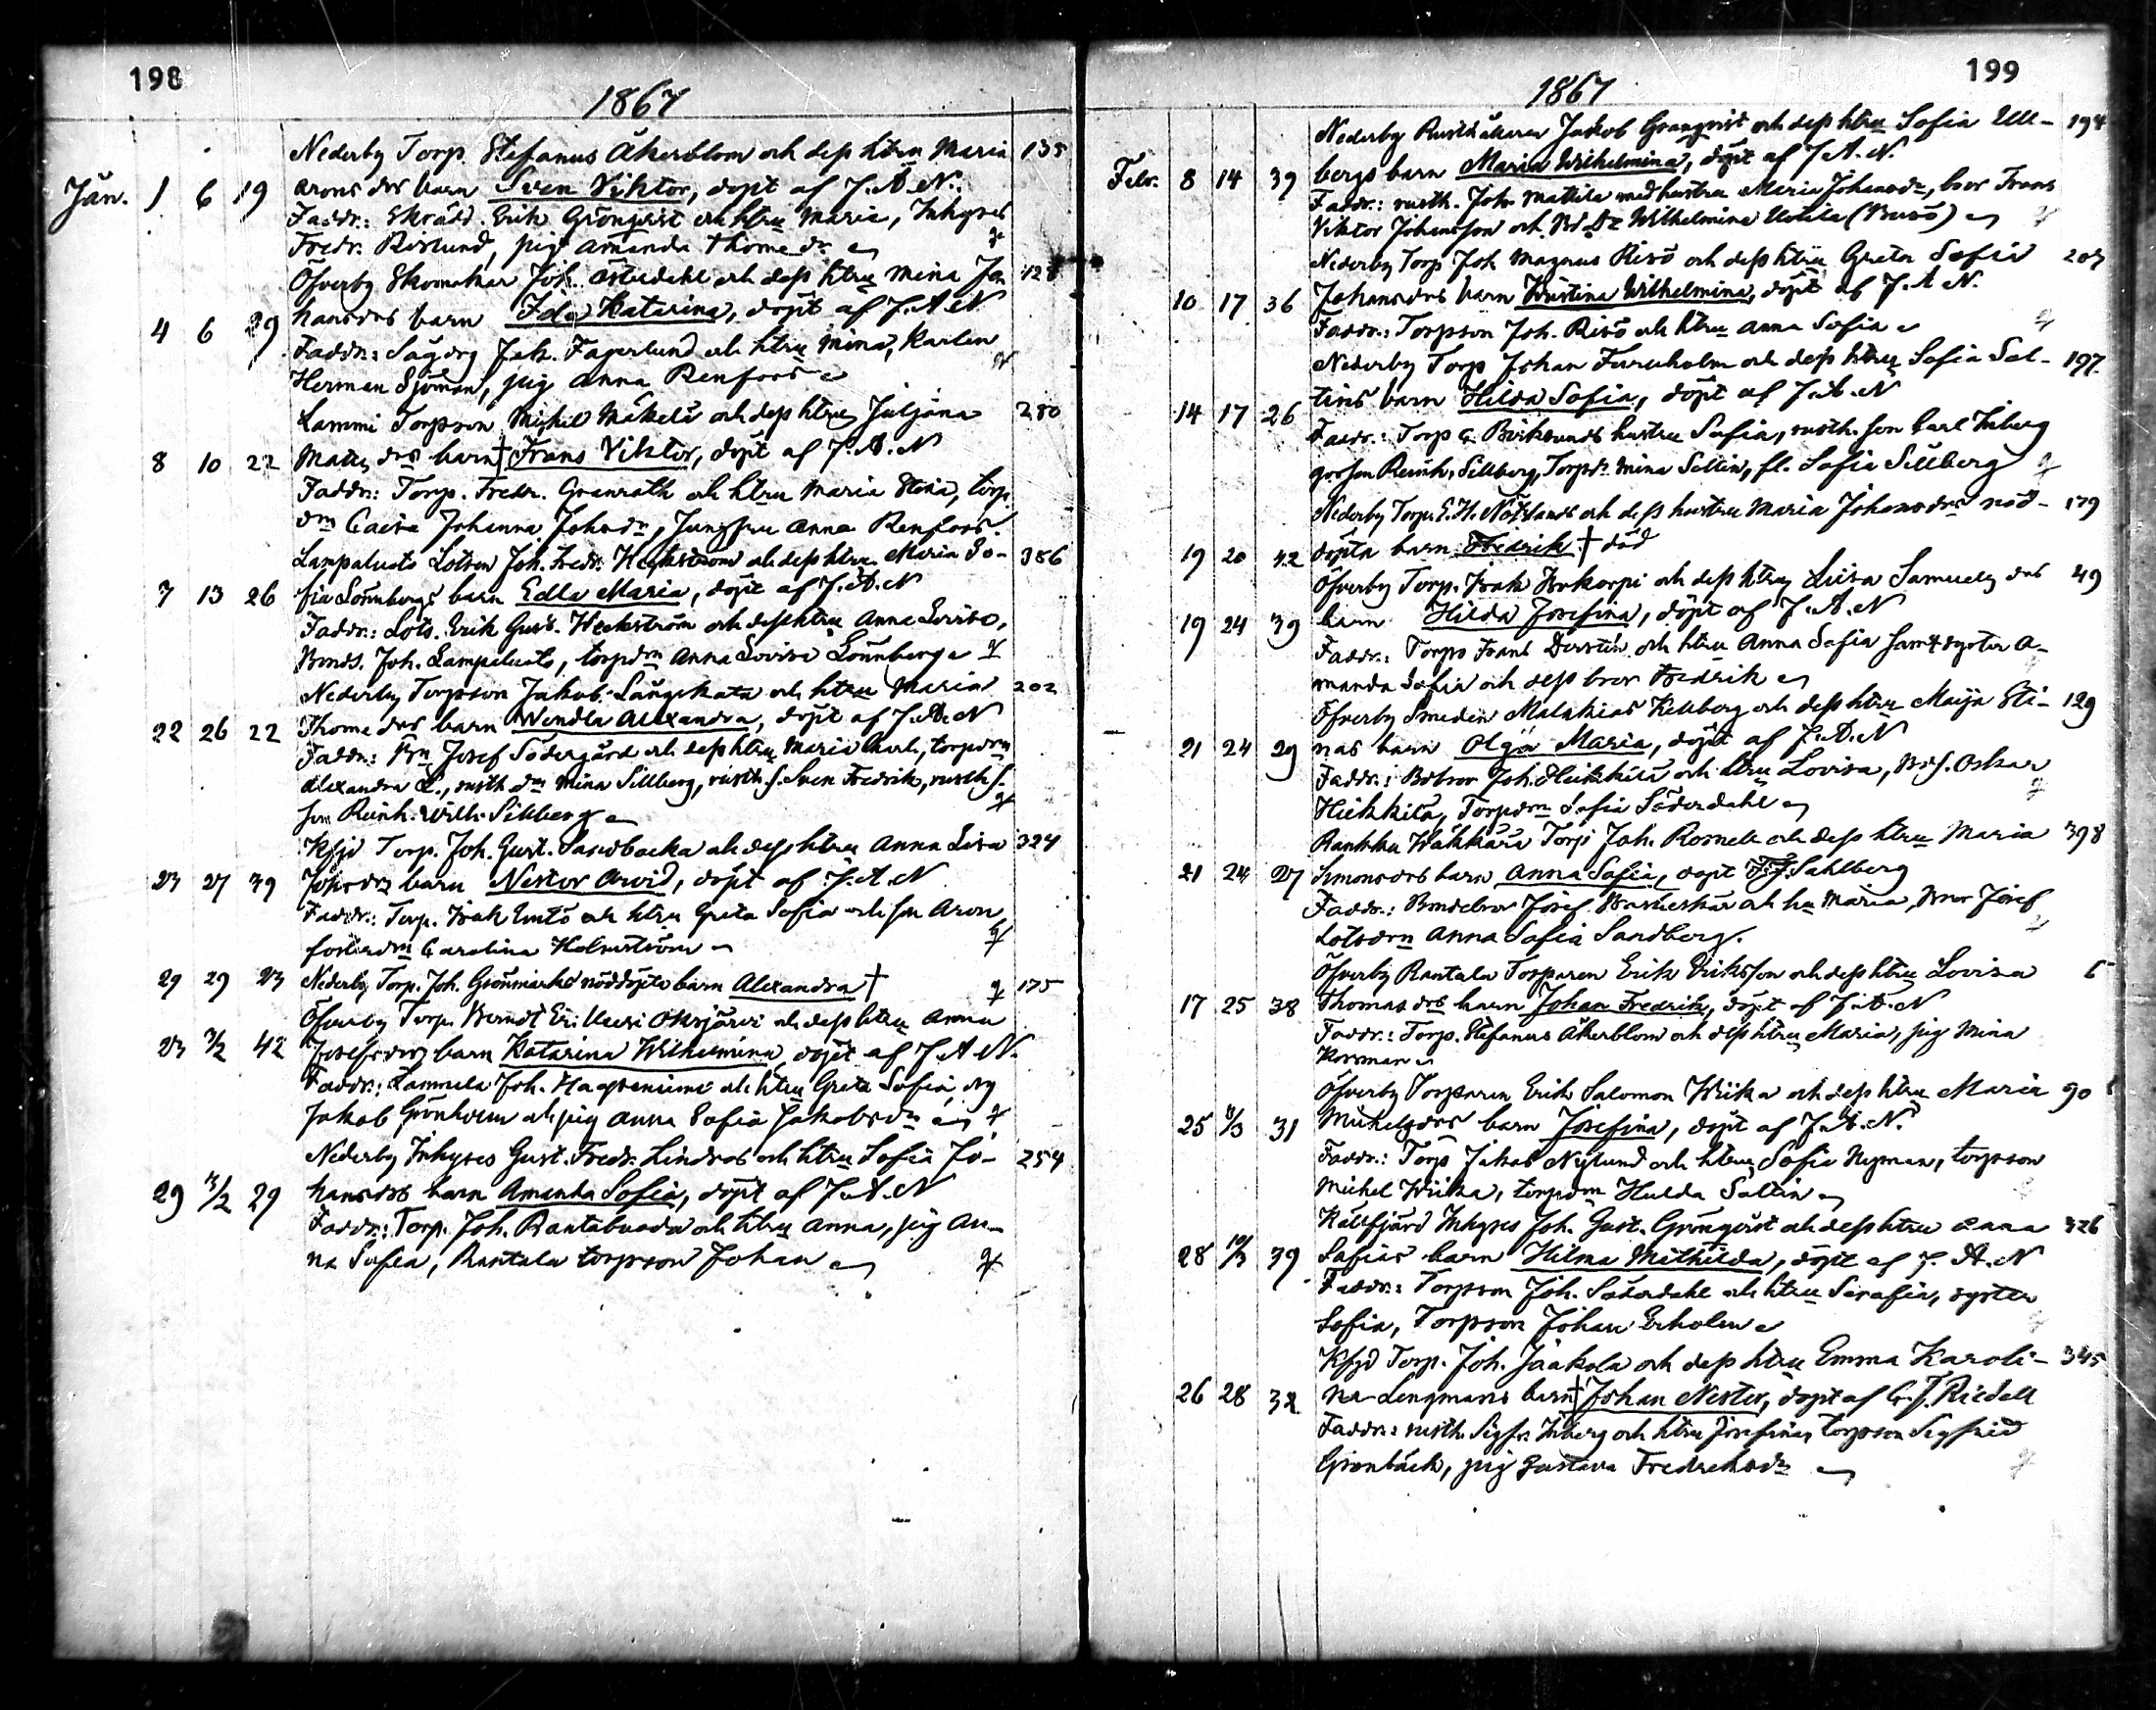 198
1867
Nederby Torp. Stefanus Åkerblom och dess htru Maria 135
Jan. 1 6 19 Arons drs barn Sven Viktor, döpt af J. A. N.
Faddr.: Skrädd. Erik Grönqvist och htru Maria, Inhyses
Fredr. Roslund, pig Amanda Thomedr
Öfverby Skomakar Joh. Österdahl och dess htru Mina Jo 128
4 6 29 hansdrs barn Ida Katarina, döpt af J. A. N
Faddr.: Sågdrg Jak. Fagerlund och htru Mina, Karlen
Herman Sjöman, pig Anna Renfors
Lammi Torpson Mickel Mäkelä och dess htru Juljana 280
8 10 22 Matts drs barn † Frans Viktor, döpt af J. A. N
Faddr.: Torp. Fredr. Granroth och htru Maria Stina, torp
drn Caisa Johanna Johsdr, Jungfru Anna Renfors.
Lampaluoto Lotsen Joh. Fredr. Heckström och dess htru Maria So- 386
7 13 26 fia Lönnbergs barn Edla Maria, döpt af J. A. N
Faddr.: Lots. Erik Gust. Heckström och dess htru Anna Lovisa,
Bonds. Joh. Lampaluoto, torpdrn Anna Lovisa Lönnberg
Nederby Torpson Jakob Långskata och htru Maria 202
22 26 22 Thomedrs barn Wendla Alexandra, döpt af J. A. N
Faddr.: Bn Josef Södergård och dess htru Maria Charl., torpdrn
Alexandra L., rusth dr Mina Sillberg, rusth. s. Sven Fredrik, rusth s.
son Reinh. Wilh. Sillberg
Kfjd Torp. Joh. Gust. Sandbacka och dess htru Anna Lisa 324
23 27 39 Josdrs barn Nestor Arvid, döpt af J. A. N
Faddr.: Torp. Isak Untö och htru Greta Sofia och son Aron,
fosterdrn Carolina Holmström
29 29 23 Nederby Torp. Joh. Grönmarks nöddöpta barn Alexandra † 175
Öfverby Torp. Berndt Er. Oksjärvi och dess htru Anna
23 3/2 42 Josefsdrs barn Katarina Wilhelmina, döpt af J. A. N.
Faddr.: Joh. Haapaniemi och htru Greta Sofia, drg
Jakob Grönholm och pig Anna Sofia Jakobsdr
Nederby Inhyses Gust. Fredr. Lindroos och htru Sofia Jo- 254
29 /2 29 hansdrs barn Amanda Sofia, döpt af J. A. N
Faddr.: Torp. Joh. Rantabuada och htru Anna, pig An-
na Sofia, Rantala torpson Johan
199
1867
Nederby Rusthållaren Jakob Granqvist och dess htru Sofia Ull- 194
Febr. 8 14 39 bergs barn Maria Wilhelmina, döpt af J. A. N.
Faddr.: rusth. Joh. Mattila med hustru Maria Johansdr, bror Frans
Viktor Johansson och Bd Dr Wilhelmina Uotila (Busö)
Nederby Torp Joh Magnus Risö och dess htru Greta Sofia 207
10 17 36 Johansdrs barn Kristina Wilhelmina, döpt af J. A N.
Faddr.: Torpson Joh. Risö och htru Anna Sofia
Nederby Torp Johan Furuholm och dess htru Sofia Sal- 197
14 17 26 tins barn Hilda Sofia, döpt af J. A. N
Faddr.: Torp G. Björksunds hustru Sofia, rusth. son Carl Inberg
gosson Reinh. Sillberg, Torpdr. Mina Saltin, fl. Sofia Sillberg
Nederby Torp. E. H. Nötslands och dess hustru Maria Johansdrs nöd- 179
19 20 42 döpta barn Fredrik † död
Öfverby Torp. Isak Forkorpi och dess htru Lisa Samuels drs 49
19 24 39 barn Hilda Josefina, döpt af J. A. N
Faddr.: Torps Frans Durstin och htru Anna Sofia samt syster A-
manda Sofia och dess bror Fredrik
Öfverby Smeden Malakias Kullberg och dess htru Maija Sti- 129
21 24 29 nas barn Olga Maria, döpt af J. A. N
Faddr.: Bobror Joh. Heikkilä och htru Lovisa, Bds. Oskar
Heikkilä, Torpdrn Sofia Söderdahl
Rankku Wäkkärä Torp Joh. Rosnell och dess htru Maria 398
21 24 27 Simonsdrs barn Anna Sofia, döpt F. F. Sahlberg
Faddr.: Bondebror Josef och hu Maria, Bror Josef
Lotsdrn Anna Sofia Sandberg.
Öfverby Rantala Torparen Erik Eriksson och dess htru Lovisa 6
17 25 38 Thomas drs barn Johan Fredrik, döpt af J. A. N
Faddr.: Torp. Stefanus Åkerblom och dess htru Maria, pig Mina
Korsman
Öfverby Torparen Erik Salomon Wiika och dess htru Maria 90
25 /3 31 Mickelsdrs barn Josefina, döpt af J. A. N.
Faddr.: Torp Jakob Nylund och htru Sofia Nyman, torpson
Mickel Wiika, torpdrn Hulda Saltin
Kållfjärd Inhyses Joh. Gust. Grönqvist och dess htru Anna 326
28 10/3 39 Sofias barn Hilma Mathilda, döpt af J. A. N
Faddr.: Torpson Joh. Söderdahl och htru Serafia, syster
Sofia, Torpson Johan Erholm
Kfjd Torp. Joh. Jaakola och dess htru Emma Karoli- 345
26 28 32 na Lengmans barn † Johan Nestor, döpt af C. J. Riedell
Faddr.: rusth. Sigfr. Inberg och htru Josefina, torpson Sigfrid
Grönbäck, pig Gustava Fredriksdr